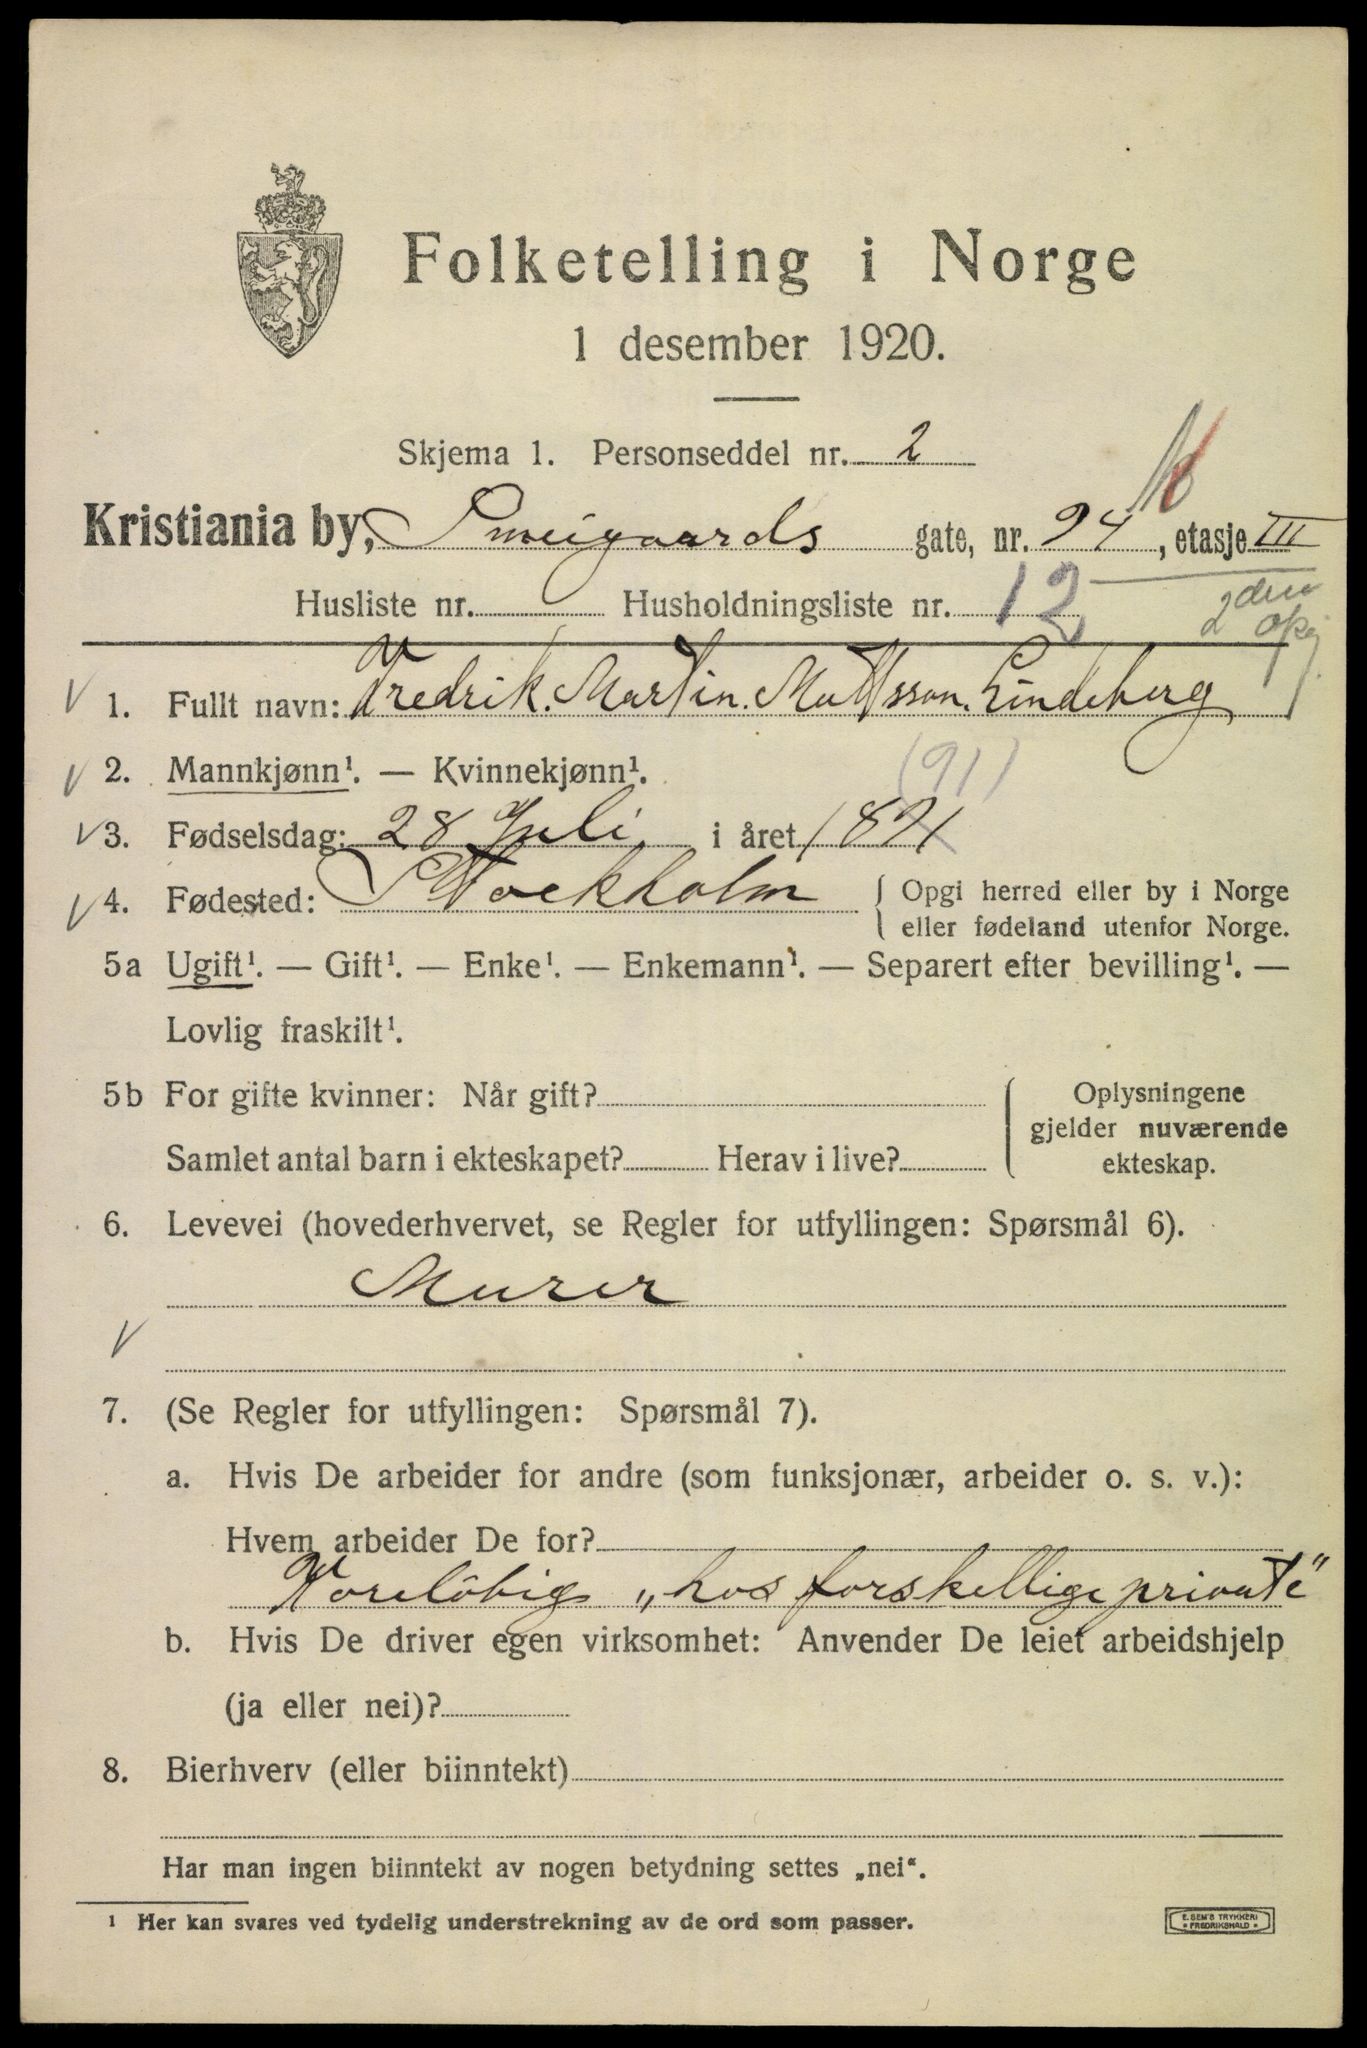 Folketelling i Norge
1 desember 1920.
Skjema 1. Personseddel nr. 2
Kristiania by, Sweigaards gate, nr. 94 b, etasje III
Husliste nr. Husholdningsliste nr. 12
2den opg.
1. Fullt navn: Fredrik. Martin. Mattsson. Lindeberg
2. Mannkjønn¹. — Kvinnekjønn¹.
(91)
3. Fødselsdag: 28 Juli i året 1891
4. Fødested: Stockholm { Opgi herred eller by i Norge
eller fødeland utenfor Norge.
5a Ugift¹. — Gift¹. — Enke¹. — Enkemann¹. — Separert efter bevilling¹. —
Lovlig fraskilt¹.
5b For gifte kvinner: Når gift? { Oplysningene
gjelder nuværende
Samlet antal barn i ekteskapet? Herav i live? ekteskap.
6. Levevei (hovederhvervet, se Regler for utfyllingen: Spørsmål 6).
Murer
7. (Se Regler for utfyllingen: Spørsmål 7).
a. Hvis De arbeider for andre (som funksjonær, arbeider o. s. v.):
Hvem arbeider De for?
Foreløbig „hos forskellige private"
b. Hvis De driver egen virksomhet: Anvender De leiet arbeidshjelp
(ja eller nei)?
8. Bierhverv (eller biinntekt)
Har man ingen biinntekt av nogen betydning settes „nei“.
¹ Her kan svares ved tydelig understrekning av de ord som passer.
E. SEM'S TRYKKERI
* FREDRIKSHALD *